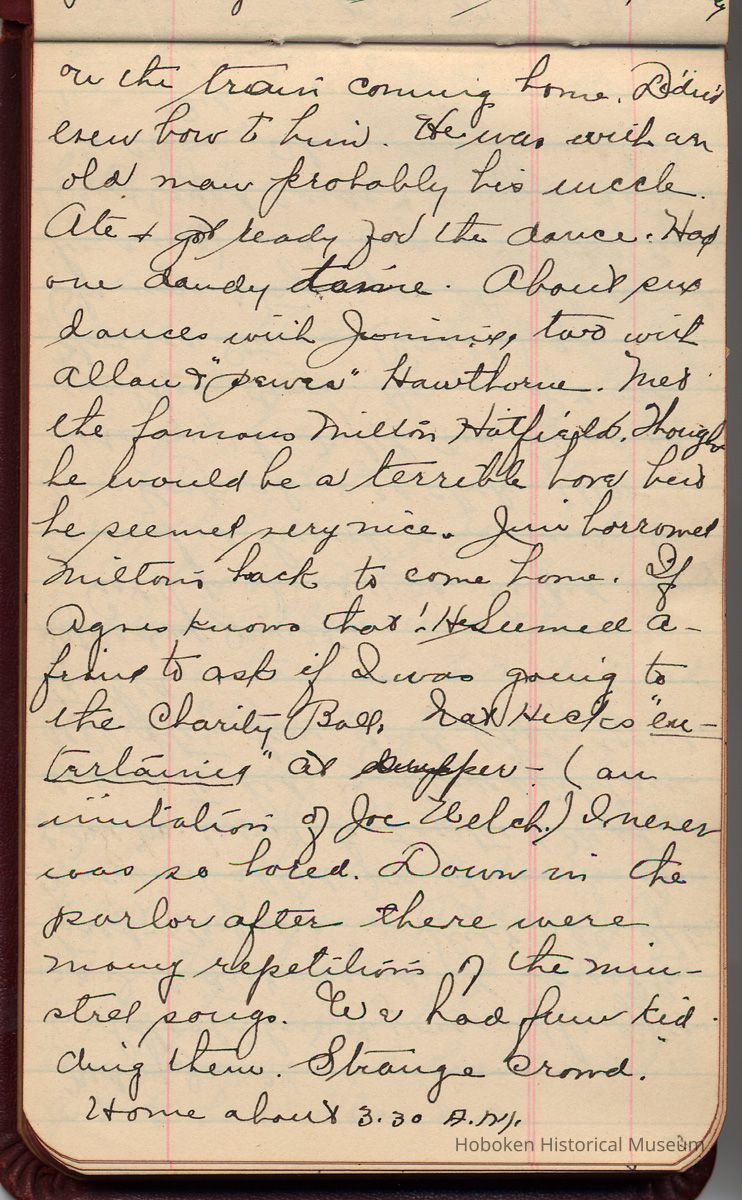 on the train coming home. Didn't
even bow to him. He was with an
old man probably his uncle.
Ate & got ready for the dance. Had
one dandy time. About six
dances with Jimmie, two with
Allan & " " Hawthorne. Met
the famous Milton Hatfield. Thought
he would be a terrible bore but
he seemed very nice. Jim borrowed
Milton's hack to come home. If
Agnes knows that! He seemed a-
fraid to ask if I was going to
the Charity Ball. Hicks "en-
tertained" at supper - (an
imitation of Joe Welch.) I never
was so bored. Down in the
parlor after there were
many repetitions of the min-
strel songs. We had fun kid
ding them. Strange Crowd."
Home about 3.30 A.M.
Hoboken Historical Museum